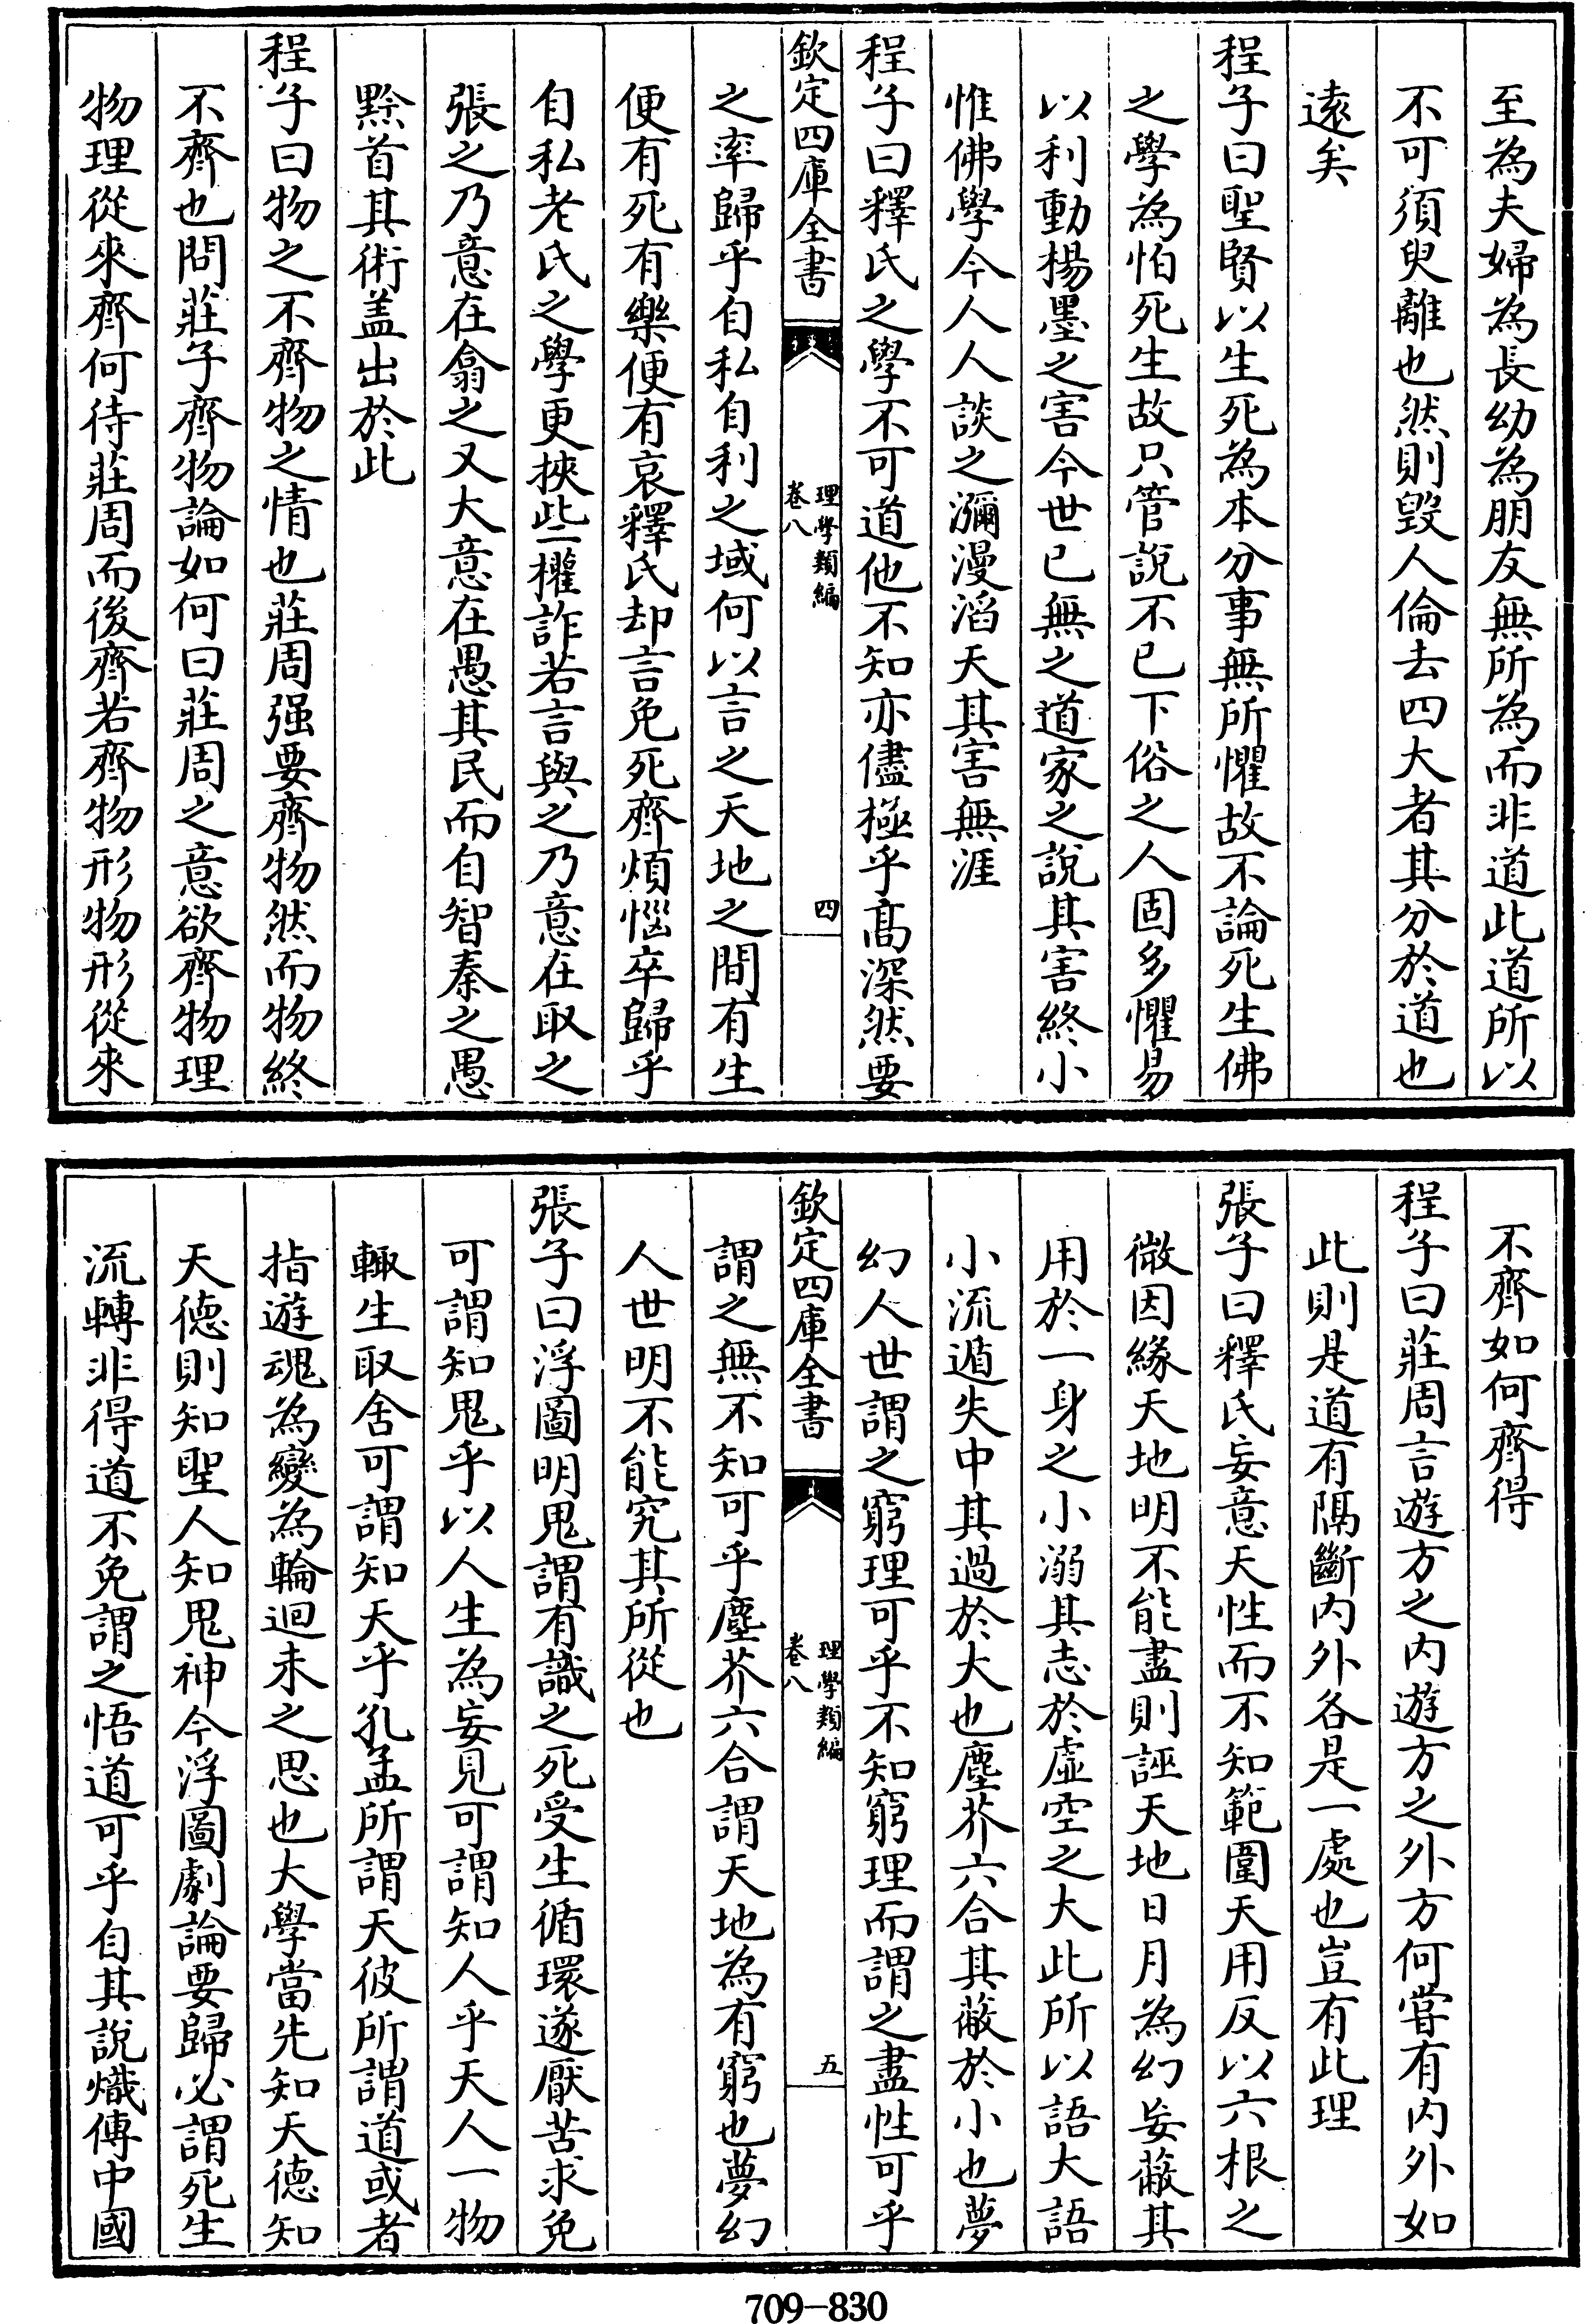 至為夫婦為長幼為朋友無所為而非道此道所以
不可須臾離也然則毀人倫去四大者其分於道也
遠矣
程子曰聖賢以生死為本分事無所懼故不論死生佛
之學為怕死生故只管說不已下俗之人固多懼易
以利動楊墨之害今世已無之道家之說其害終小
惟佛學今人人談之瀰漫滔天其害無涯
程子曰釋氏之學不可道他不知亦儘極乎髙深然要
欽定四庫全書
理學類編
卷八
四
之率歸乎自私自利之域何以言之天地之間有生
便有死有樂便有哀釋氏却言免死齊煩惱卒歸乎
自私老氏之學更挾些權詐若言與之乃意在取之
張之乃意在翕之又大意在愚其民而自智秦之愚
黔首其術盖出於此
程子曰物之不齊物之情也莊周强要齊物然而物終
不齊也問莊子齊物論如何曰莊周之意欲齊物理
物理從來齊何待莊周而後齊若齊物形物形從來
不齊如何齊得
程子曰莊周言遊方之内遊方之外方何甞有内外如
此則是道有隔斷内外各是一處也豈有此理
張子曰釋氏妄意天性而不知範圍天用反以六根之
微因緣天地明不能盡則誣天地日月為幻妄蔽其
用於一身之小溺其志於虛空之大此所以語大語
小流遁失中其過於大也塵芥六合其蔽於小也夢
幻人世謂之窮理可乎不知窮理而謂之盡性可乎
欽定四庫全書
理學類編
卷八
五
謂之無不知可乎塵芥六合謂天地為有窮也夢幻
人世明不能究其所從也
張子曰浮圖明鬼謂有識之死受生循環遂厭苦求免
可謂知鬼乎以人生為妄見可謂知人乎天人一物
輙生取舍可謂知天乎孔孟所謂天彼所謂道或者
指遊魂為變為輪迴未之思也大學當先知天德知
天德則知聖人知鬼神今浮圖劇論要歸必謂死生
流轉非得道不免謂之悟道可乎自其說熾傳中國
709-830